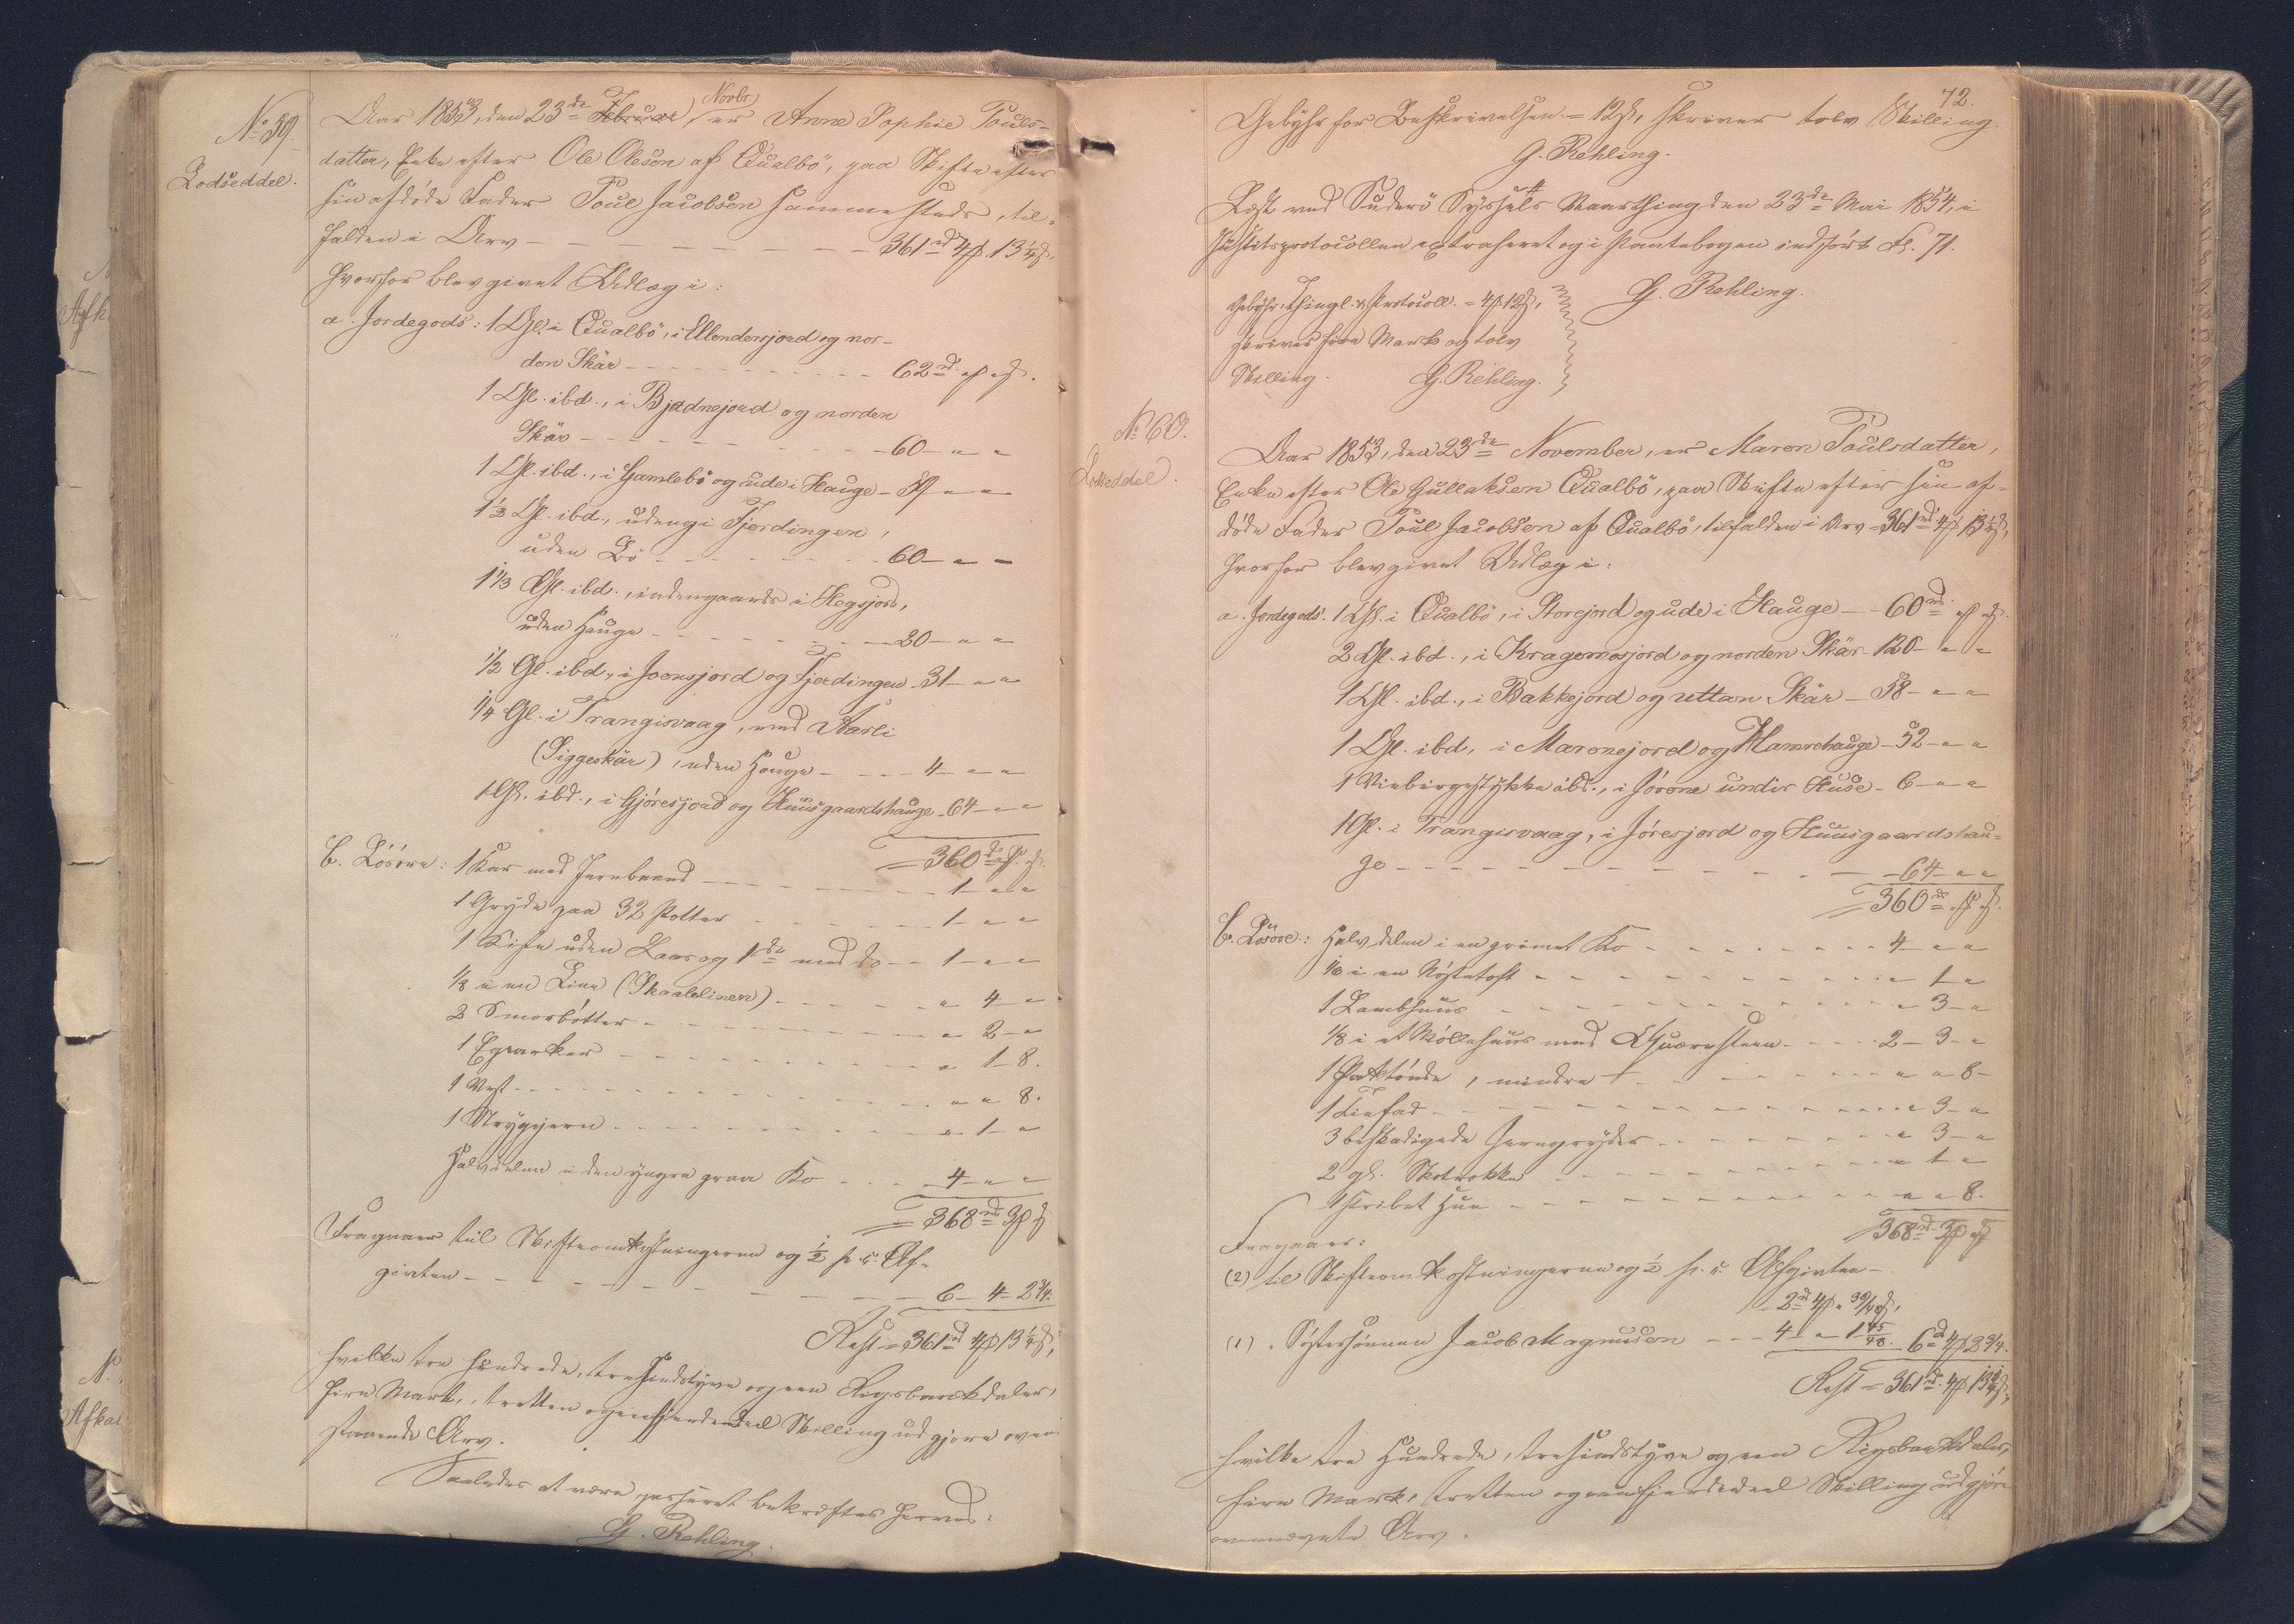 No 59.
Lodseddel.
Aar 1853, den 23de Februar, Novbr, er Anne Sophie Pouls-
datter, Enke efter Ole Olesen af Qualbö, paa Skifte efter
sin afdöde Fader Poul Jacobsen sammesteds, til-
falden i Arv - - - 361rd 4 13 1/4
hvorfor blev givet Udlæg i:
a. Jordegods: 1 Gl. i Qualbö, i Ellendersjord og nor-
den Skär - - - 62rd
1 Gl. ibd., i Bjadnejord og norden
Skär - - - 60 - " "
1 Gl. ibd., i Gamlebö og ude i Hauge - 59 " "
1 1/2 Gl. ibd., udengi Fjerdingen,
uden Bö - - - 60 - " "
1 1/3 Gl. ibd., indengaards i Hegsjord,
uden Hauge - - - 20 - " "
1/2 Gl. ibd., i Joensjord og Fjerdingen - 31 - " "
1/4 Gl. i Trangisvaag, med Aarli
(Siggeskär), uden Hauge - - - 4 - " "
1 Gl. ibd., i Gjóresjord og Huusgaardshauge - 64 - " "
= 360rd
b. Lösöre: 1 Kar med Jernbaand - - - 1 - " "
1 Gryde paa 32 Potter - - - 1 - " "
1 Kiste uden Laas og 1 do med do - - 1 - " "
1/8 i en Line (Skaalelinen) - - - " 4 - "
2 Smorbötter - - - " 2 - "
1 - - - " 1 - 8.
1 Vest - - - " " 8.
1 Strygejern - - - " 1 - "
Halvdelen i den yngre graa Ko - - - 4 - " "
= 368rd 3
Fragaaer til Skifteomkostningerne og 1/2 p. c. Af-
giften - - - 6 - 4 - 2 3/4.
Rest = 361rd 4 13 1/4
hvilke tre hundrede, tresindstyve og een Rigsbankdaler,
fire Mark, tretten og en fjerdedeel Skilling udgjøre oven-
staaende Arv.
Saaledes at være passeret bekræftes herved:
G. Rehling.
72.
Gebyhr for Beskrivelsen = 12, skriver tolv Skilling.
G. Rehling.
Læst ved Suderö Syssels Vaarthing den 23de Mai 1854, i
Justitsprotocollen extraheret og i Pantebogen indfört Fl. 71.
G. Rehling.
Gebyhr: Thingl. & Protocoll. = 4 12,
skrives fire Mark og tolv
Skilling. G. Rehling.
No 60.
Lodseddel.
Aar 1853, den 23de November, er Maren Poulsdatter,
Enke efter Ole Gullaksen Qualbö, paa Skifte efter sin af-
döde Fader Poul Jacobsen af Qualbö, tilfalden i Arv = 361rd 4 13 1/4,
hvorfor blev givet Udlæg i:
a. Jordegods: 1 Gl. i Qualbö, i Storejord og ude i Hauge - - 60rd
2 Gl. ibd., i Kragemosjord og norden Skär - 120 - " "
1 Gl. ibd., i Bakkejord og uttan Skär - 58 - " "
1 Gl. ibd., i Maronejord og Hamrehauge - 52 - " "
1 ibd., i Jórone undir Huse - 6 - " "
1 Gl. i Trangisvaag, i Jóresjord og Huusgaardshau-
ge - - - 64 - " "
= 360rd
b. Lösöre: Halvdelen i en grimet Ko - - - 4 " "
1/8 i en Nöstetoft - - - " 1 - "
1 Lambhuus - - - " 3 - "
1/8 i et Möllehuus med Quærnsteen - - - 2 - 3 - "
1 , mindre - - - " " 8 -
1 Tinfad - - - " 3 - "
3 beskadigede Jerngryder - - - " 3 - "
2 gl. Skotrokke - - - " 1 - "
1 stribet Hue - - - " " 8.
368rd 3
Fragaaer:
(2) til Skifteomkostningerne og 1/2 p. c. Afgiften -
- 2rd 4 " 39/48,
(1) " Söstersönnen Jacob Magnusen - - - 4 - " 1 45/48. 6rd 4 2 3/4.
Rest = 361rd 4 13 1/4,
hvilke tre Hundrede, tresindstyve og een Rigsbankdaler,
fire Mark, tretten og een fjerdedeel Skilling udgjöre
ovennævnte Arv.